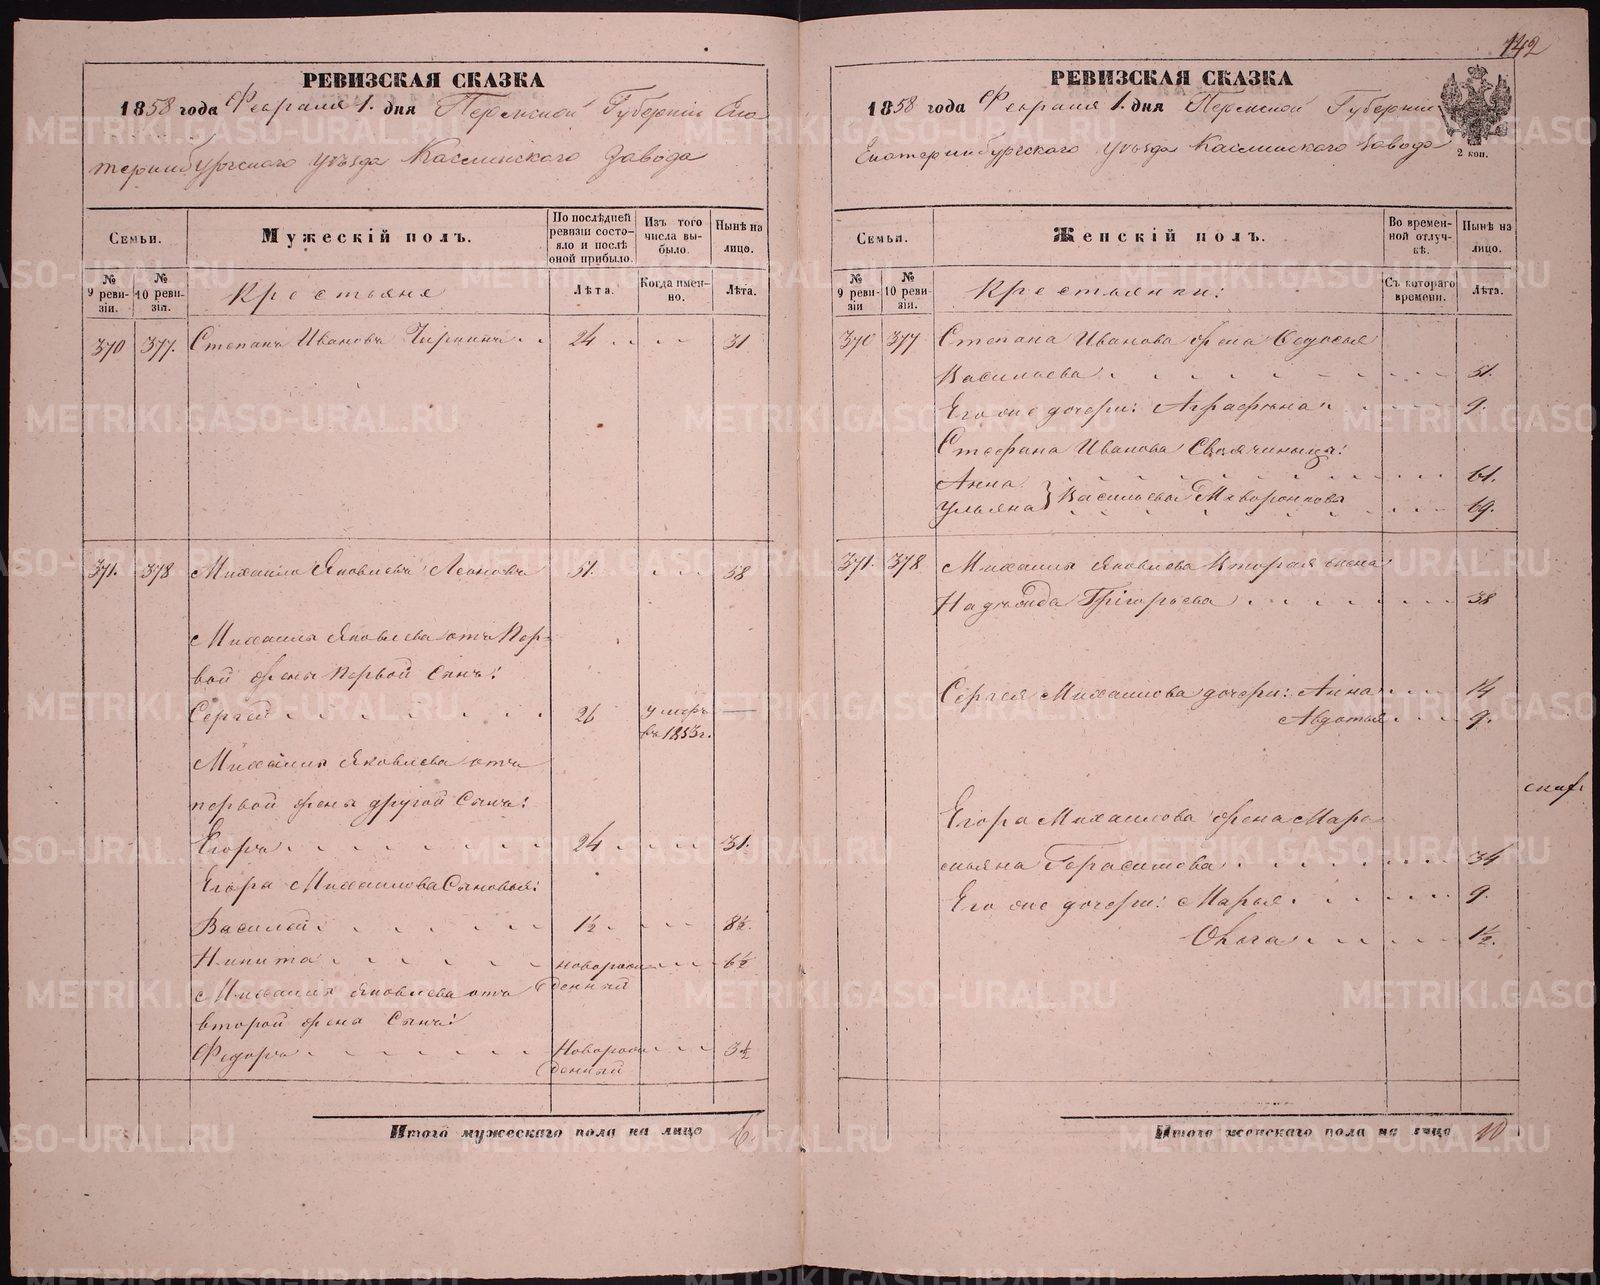 142
РЕВИЗСКАЯ СКАЗКА
1858 года Февраля 1. дня Пермской Губернiи Ека
теринбургскаго уѣзда Каслинскаго Завода
Семьи.
Мужескiй полъ.
По послѣдней ревизiи состояло и послѣ оной прибыло.
Изъ того числа выбыло.
Нынѣ на лицо.
№ 9 ревизiи.
№ 10 ревизiи.
Крестьяне
Лѣта.
Когда именно.
Лѣта.
370 377. Степанъ Ивановъ 24 31
371. 378 Михаило Яковлевъ Леоновъ 51. 58
Михаила Яковлева отъ пер-
вой жены первой сынъ:
Сергей 26 умеръ
въ 1853г.
Михаила Яковлева отъ
первой жены другой сынъ:
Егоръ 24 31.
Егора Михаилова сыновья:
Василей 1½ 8½.
Никита новорож 6½
денный
Михаила Яковлева отъ
второй жены сынъ:
Федоръ Новорож 3½
денный
Итого мужескаго пола на лицо 6.
РЕВИЗСКАЯ СКАЗКА
1858 года Февраля 1. дня Пермской Губернiи
Екатеринбургскаго уѣзда Каслинскаго Завода
2 коп.
Семьи.
Женскiй полъ.
Во временной отлучкѣ.
Нынѣ на лицо.
№ 9 ревизiи.
№ 10 ревизiи.
Крестьянки:
Съ котораго времени.
Лѣта.
370 377 Степана Иванова жена Федосья
Васильева 51.
Его же дочери: Аграфѣна 9.
Стефана Иванова Своячиницы:
Анна 61.
Ульяна } Васильевы 69.
371. 378 Михаила Яковлева вторая жена
Надѣжда Грiгорьева 38
Сергея Михаилова дочери: Анна 14
Авдотья 9.
Егора Михаилова жена Маре
мьяна Герасимова 34
Его же дочери: Марья 9.
Ольга 1½.
Итого женскаго пола на лицо 10
METRIKI.GASO-URAL.RU